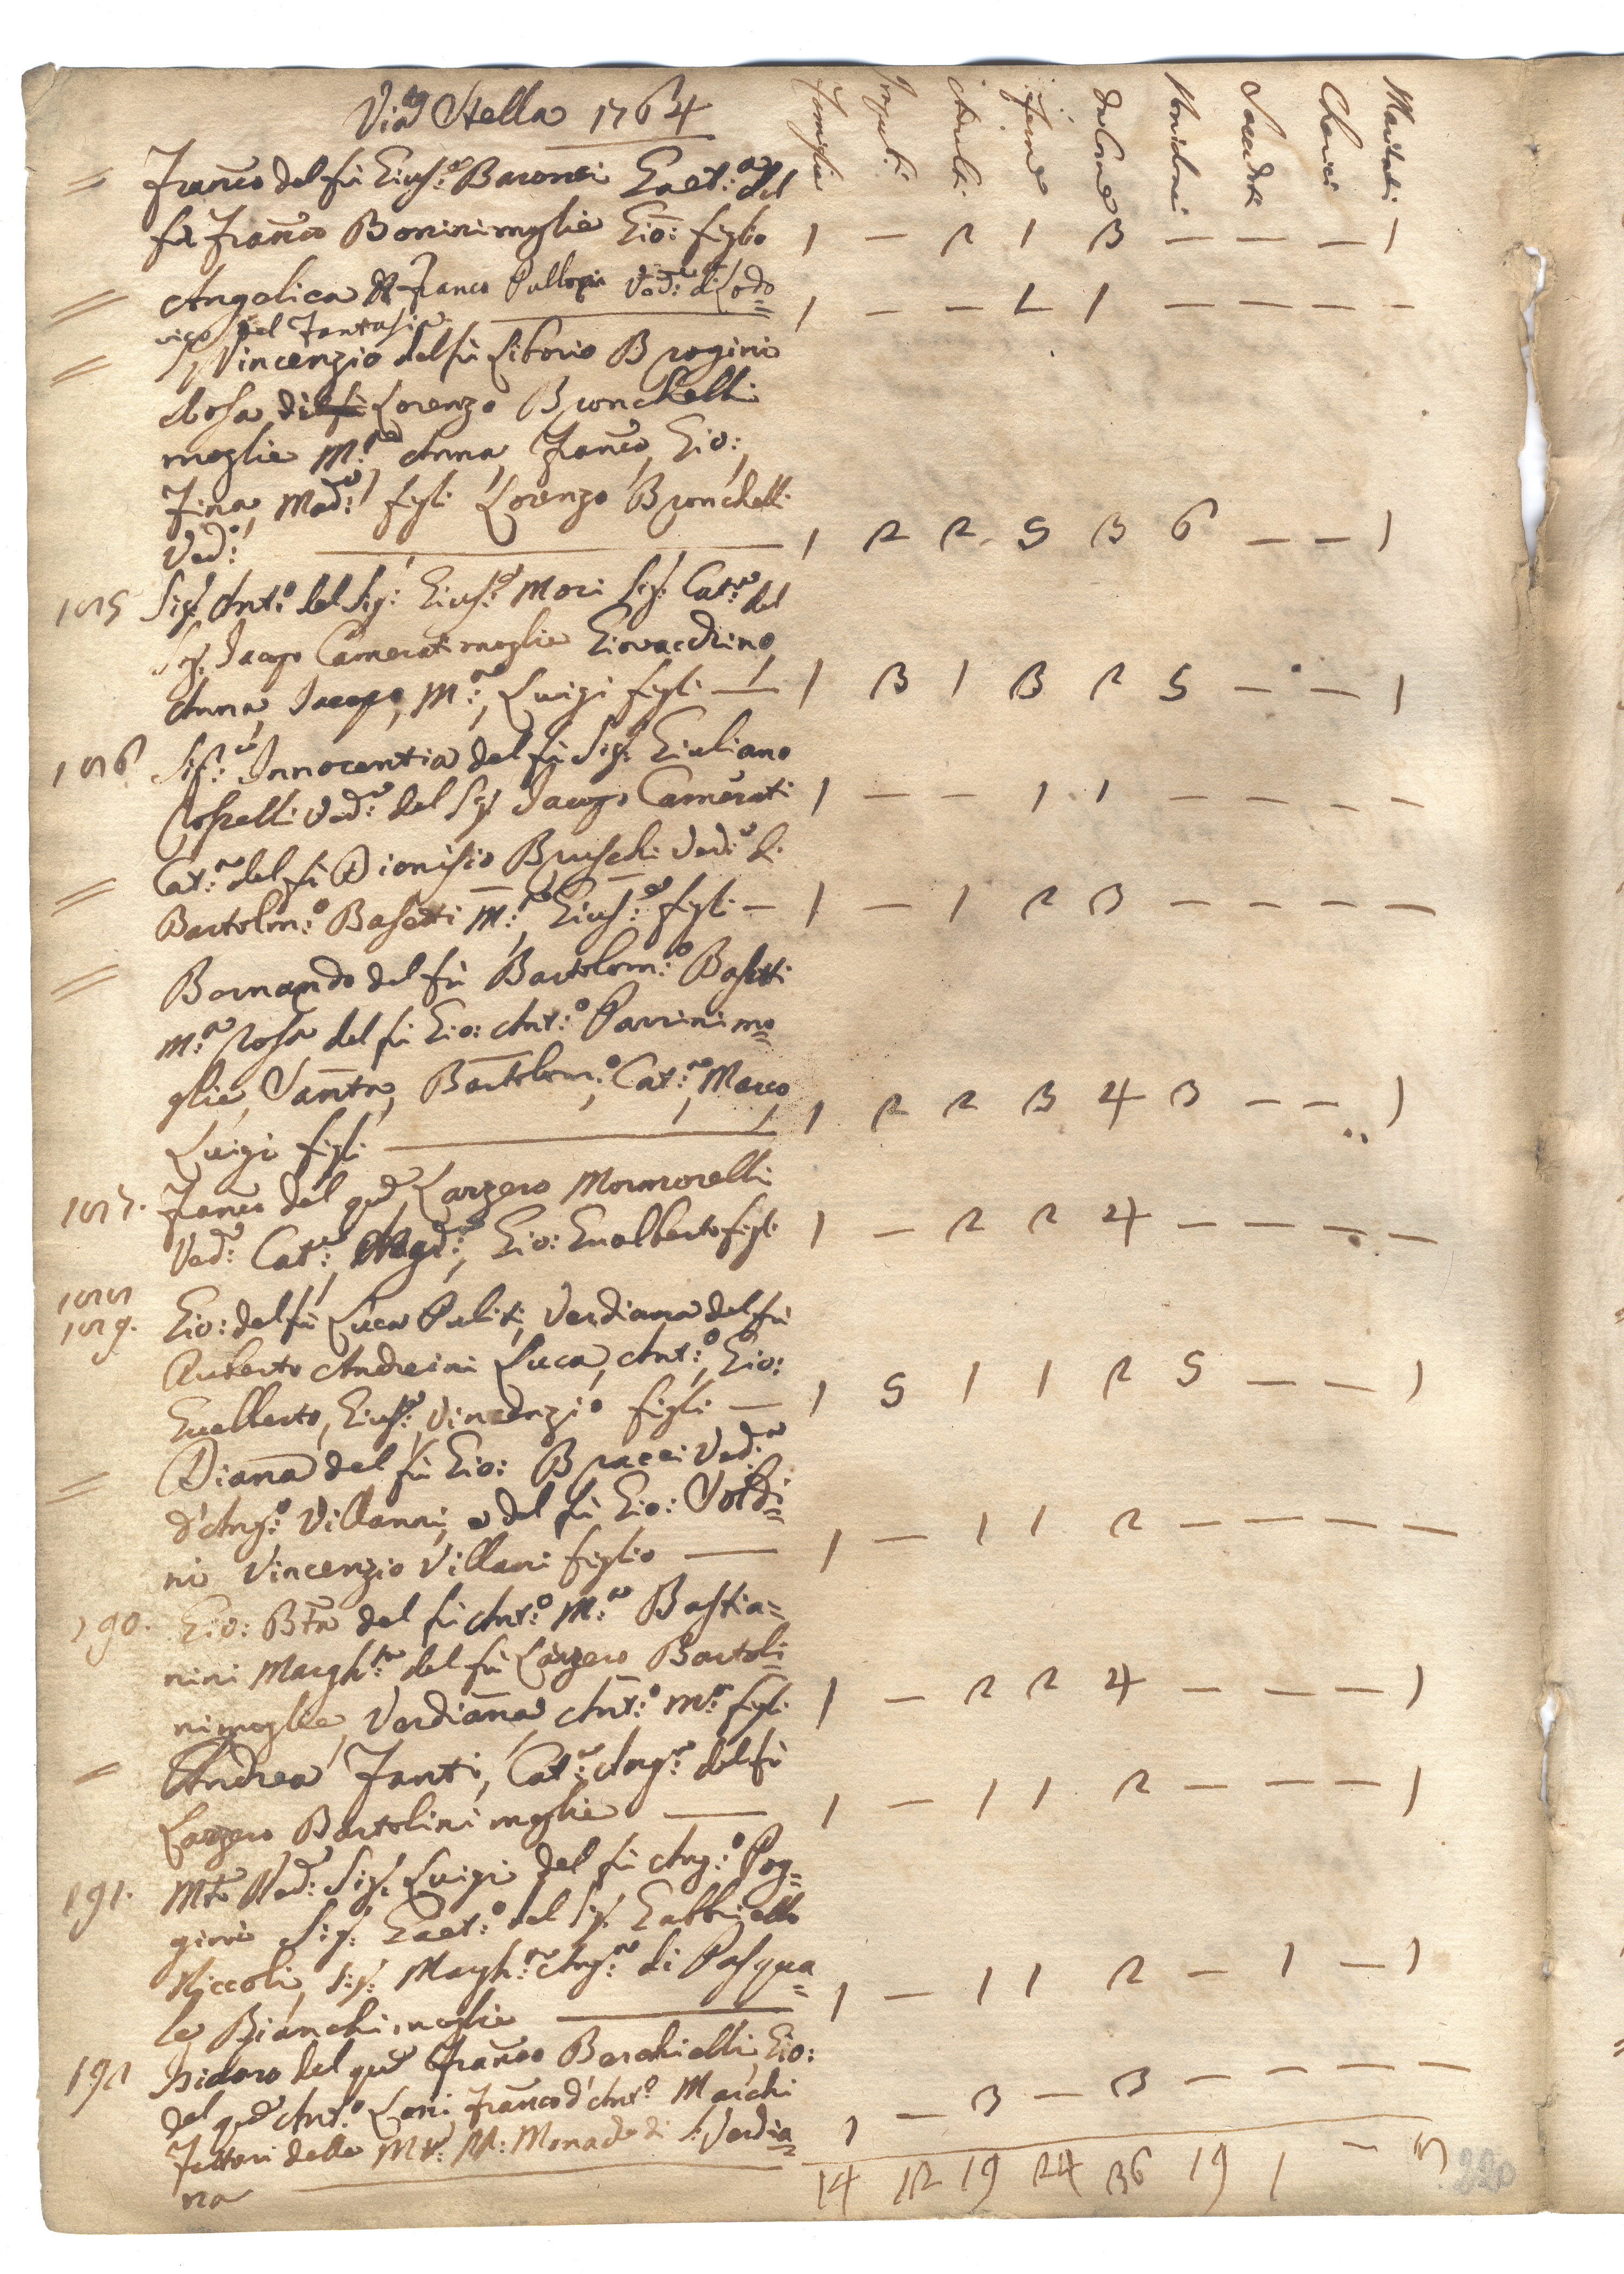 Via Stella 1764
Famiglie Impuberi Maschi Femine da Com.ne Non da Com.ne Sacerdoti Cherici Maritati
= Fran.co del fù Gius.e Baronci Gaet.a del
fù Fran.co Bonini moglie Gio: figlio 1 — 2 1 3 — — — 1
= Angelica di Franco Ved.a di Lodo=
vico del Fantasia 1 — — 1 1 — — — —
= Vincenzio del fù Liborio Brogini
Rosa di Lorenzo Bronchelli
moglie M.a Anna, Fran.co, Gio:,
Fina, Mad.a figli Lorenzo Bronchelli
Ved.o 1 2 2 5 3 6 — — 1
185 Sig. Ant.o del Sig. Gius.e Mori Sig. Cat.a del
Sig. Jacopo Camerati moglie Giovacchino
Anna, Jacopo, M.a, Luigi figli — 1 3 1 3 2 5 — — 1
186 Sig.a Innocentia del fù Sig. Giuliano
Rosselli Ved.a del Sig. Jacopo Camerati 1 — — 1 1 — — — —
= Cat.a del fù Dionisio Bruschi Ved.a di
Bartolm.o Basetti M.a, Gius.e figli — 1 — 1 2 3 — — — —
= Bernardo del fù Bartolom.o Basetti
M.a Rosa del fù Gio: Ant.o Parrini mo=
glie, Santa, Bartolom.o, Cat.a, Marco,
Luigi figli 1 2 2 3 4 3 — — 1
187. Fran.co del qu.m Lazzero Mormorelli
Ved.o Cat.a, Magd.a, Gio: Gualberto figli 1 — 2 2 4 — — — —
188
189. Gio: del fù Luca Puliti, Verdiana del fù
Ruberto Andreini Luca, Ant.o, Gio:
Gualberto, Gius.e, Vincenzio figli — 1 5 1 1 2 5 — — 1
= Diana del fù Gio: Bracci Ved.a
d'Ang.o Villanni, e del fù Gio: Voldi=
ni Vincenzio Villani figlio — 1 — 1 1 2 — — — —
190. Gio: Bta del fù Ant.o M.a Bastia=
nini Margh.ta del fù Lazzero Bartoli=
ni moglie, Verdiana, Ant.o M.a figli 1 — 2 2 4 — — — 1
= Andrea Fanti, Cat.a Ang.a del fù
Lazzero Bartolini moglie — 1 — 1 1 2 — — — 1
191. Mto Red.o Sig. Luigi del fù Ang.o Pog=
gini Sig. Gaet.o del Sig. Gabbriello
Niccoli, Sig. Margh.ta Ang.a di Pasqua=
le Bianchi moglie 1 — 1 1 2 — 1 — 1
192 Isidoro del qu.m Franco Berchielli, Gio:
del qu.m Ant.o Lori Franco d'Ant.o Marchi
Fattori delle M.to R.R: Monache di S: Verdia=
na 1 — 3 — 3 — — — —
14 12 19 24 36 19 1 — 8
220